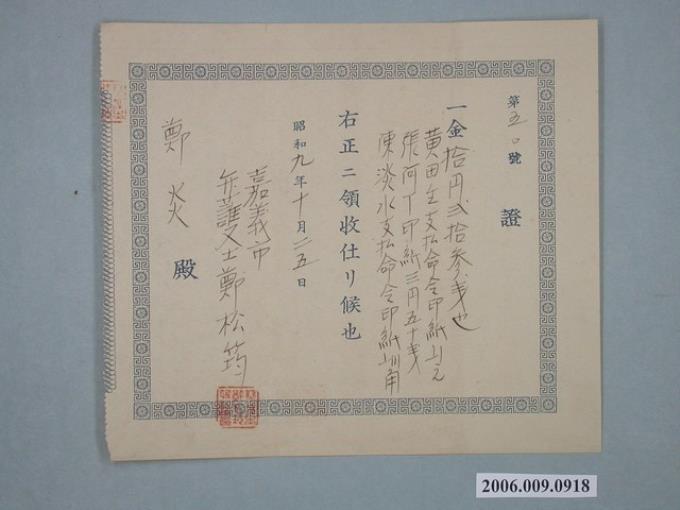 第五〇號
證
一金拾円弍拾参戋也
黄田生支払命令印紙刂元
張阿丁印紙三円五十戋
陳淡水支払命令印紙川角
右正ニ領收仕リ候也
昭和九年十月二五日
嘉義市
弁護士鄭松筠
鄭火炎殿
2006.009.0918